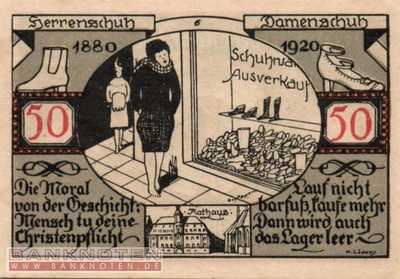 Herrenschuh
6
Damenschuh
1880
1920
Schuhwar
Ausverkauf
50
50
Die Moral
von der Geschicht:
Mensch tu deine
Christenpflicht
Rathaus
Lauf nicht
barfuß, kaufe mehr
Dann wird auch
das Lager leer
BANKNOTEN
WWW.BANKNOTEN.DE